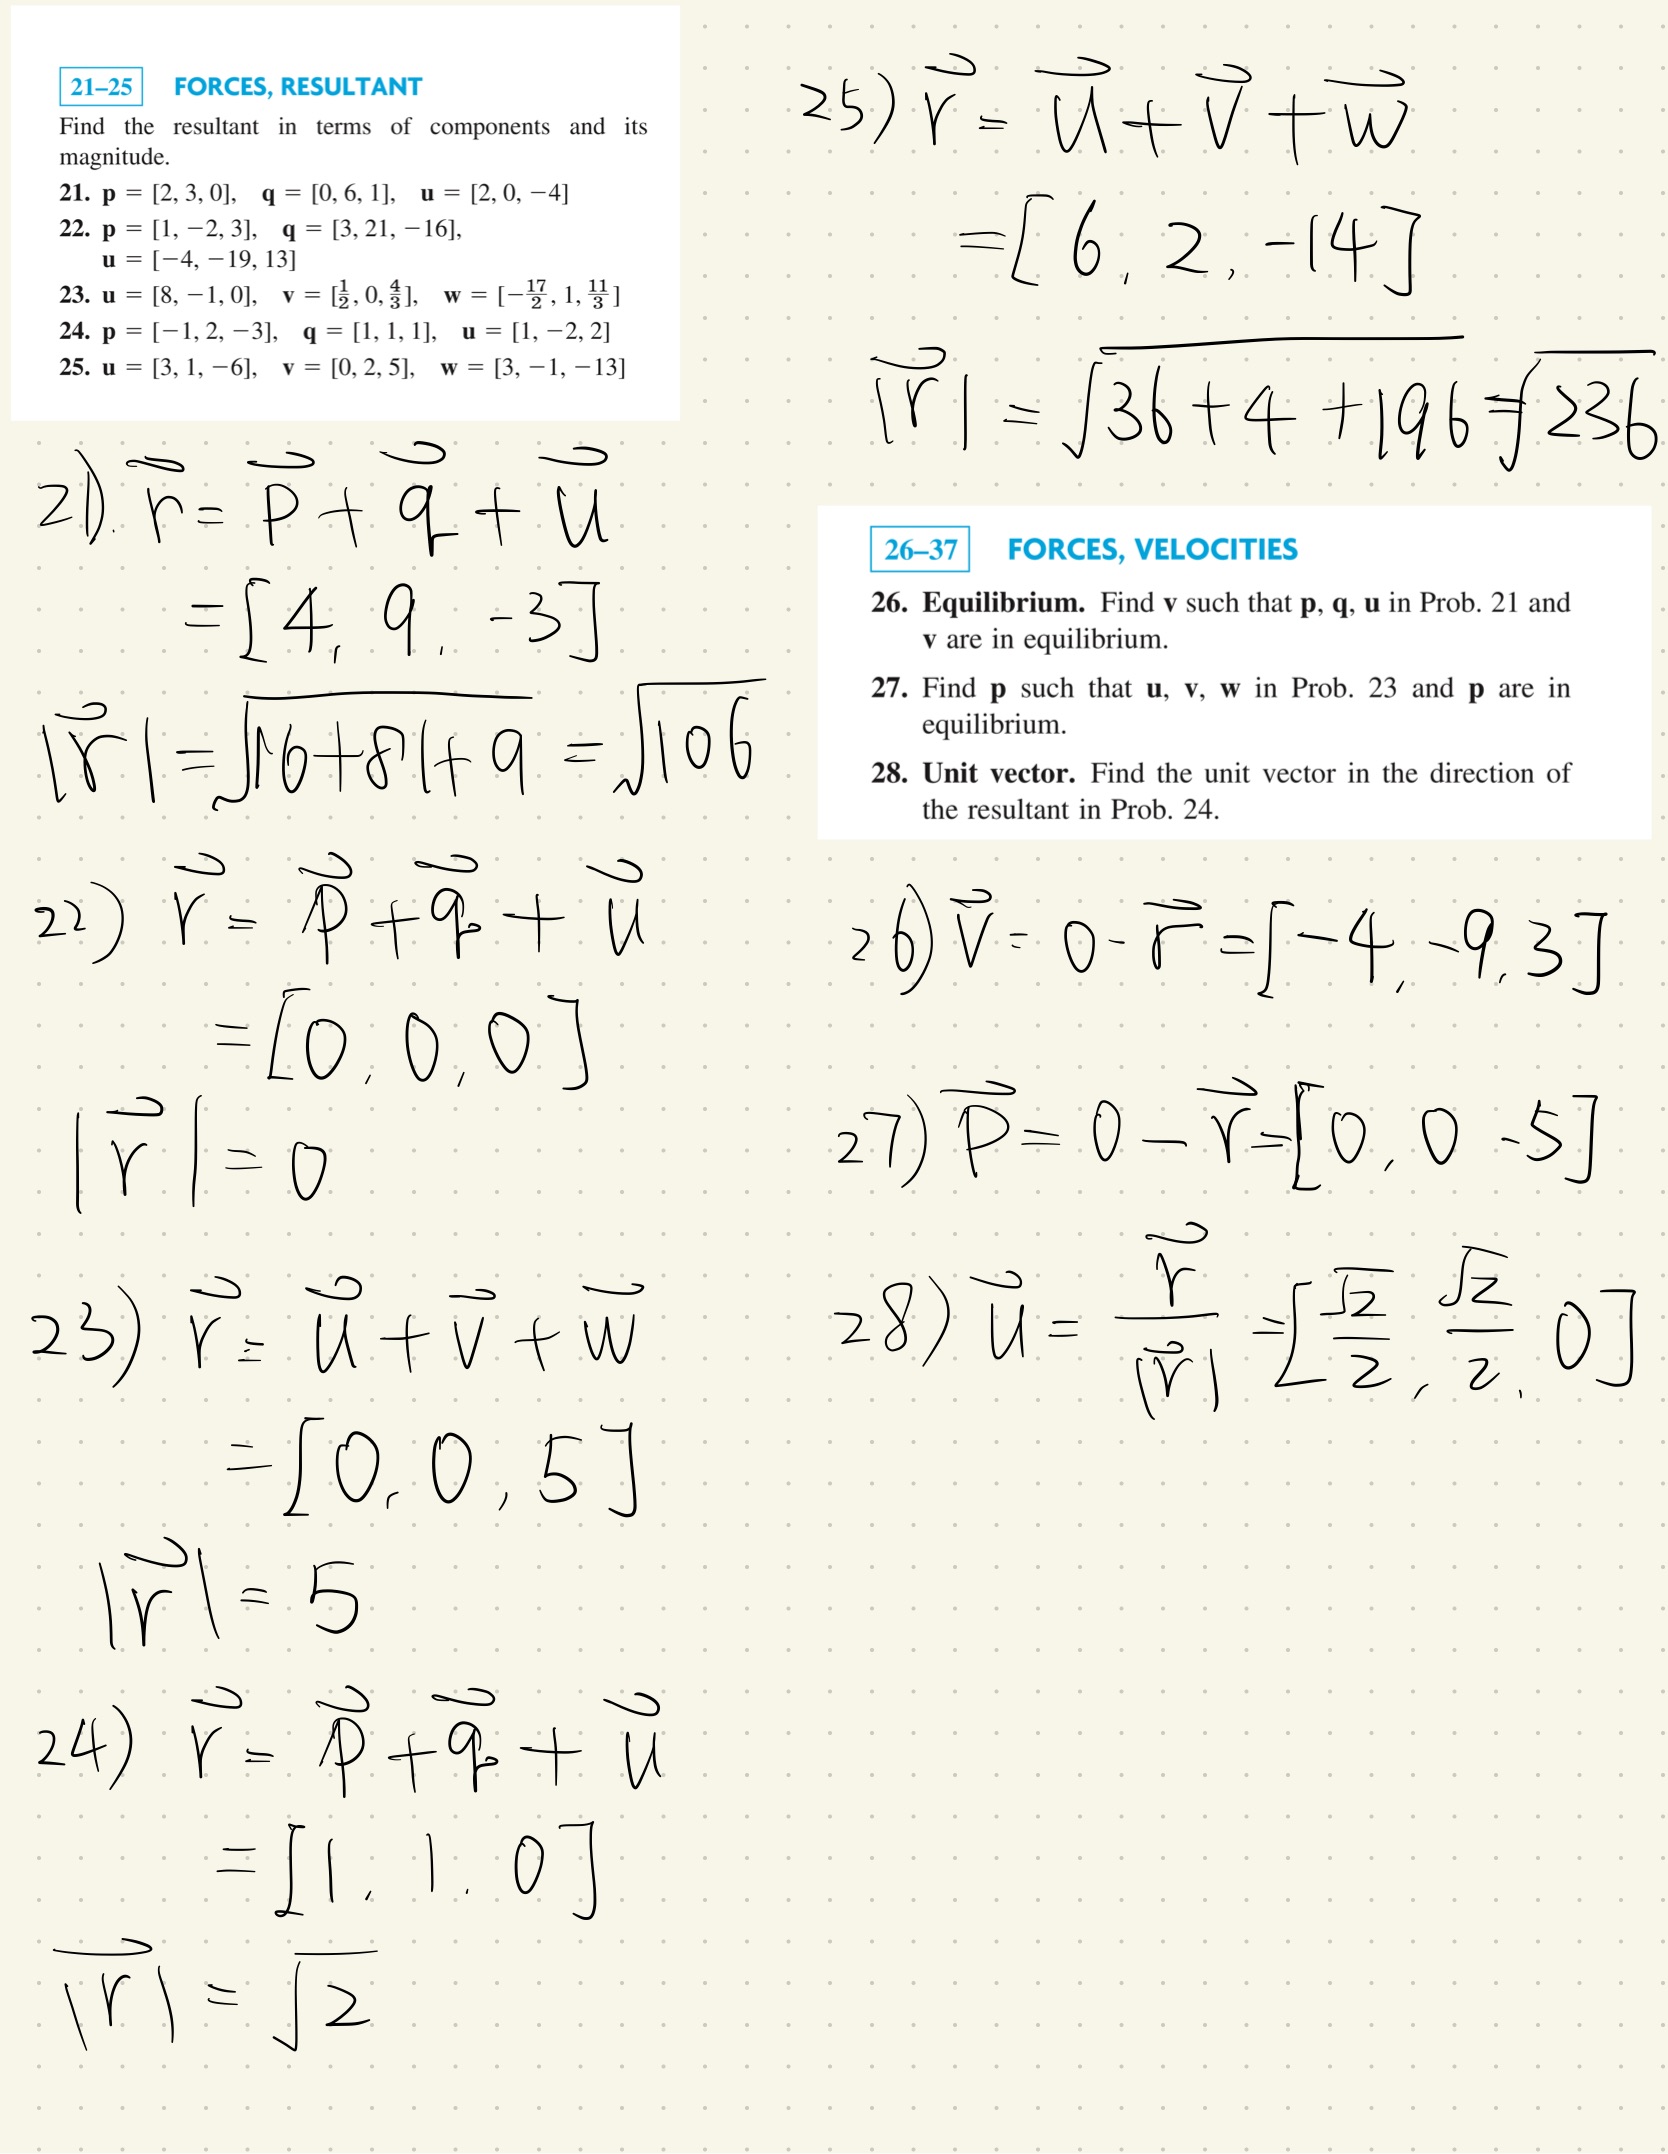 21–25 FORCES, RESULTANT
Find the resultant in terms of components and its
magnitude.
21. p = [2, 3, 0], q = [0, 6, 1], u = [2, 0, −4]
22. p = [1, −2, 3], q = [3, 21, −16],
u = [−4, −19, 13]
23. u = [8, −1, 0], v = [1/2, 0, 4/3], w = [−17/2, 1, 11/3]
24. p = [−1, 2, −3], q = [1, 1, 1], u = [1, −2, 2]
25. u = [3, 1, −6], v = [0, 2, 5], w = [3, −1, −13]
21). r⃗ = p⃗ + q⃗ + u⃗
= [4, 9, -3]
|r⃗| = √16+81+9 = √106
22) r⃗ = p⃗ + q⃗ + u⃗
= [0, 0, 0]
|r⃗| = 0
23) r⃗ = u⃗ + v⃗ + w⃗
= [0, 0, 5]
|r⃗| = 5
24) r⃗ = p⃗ + q⃗ + u⃗
= [1, 1, 0]
|r⃗| = √2
25) r⃗ = u⃗ + v⃗ + w⃗
= [6, 2, -14]
|r⃗| = √36+4+196 = √236
26–37 FORCES, VELOCITIES
26. Equilibrium. Find v such that p, q, u in Prob. 21 and
v are in equilibrium.
27. Find p such that u, v, w in Prob. 23 and p are in
equilibrium.
28. Unit vector. Find the unit vector in the direction of
the resultant in Prob. 24.
26) v⃗ = 0 - r⃗ = [-4, -9, 3]
27) p⃗ = 0 - r⃗ = [0, 0 -5]
28) u⃗ = r⃗/|r⃗| = [√2/2, √2/2, 0]